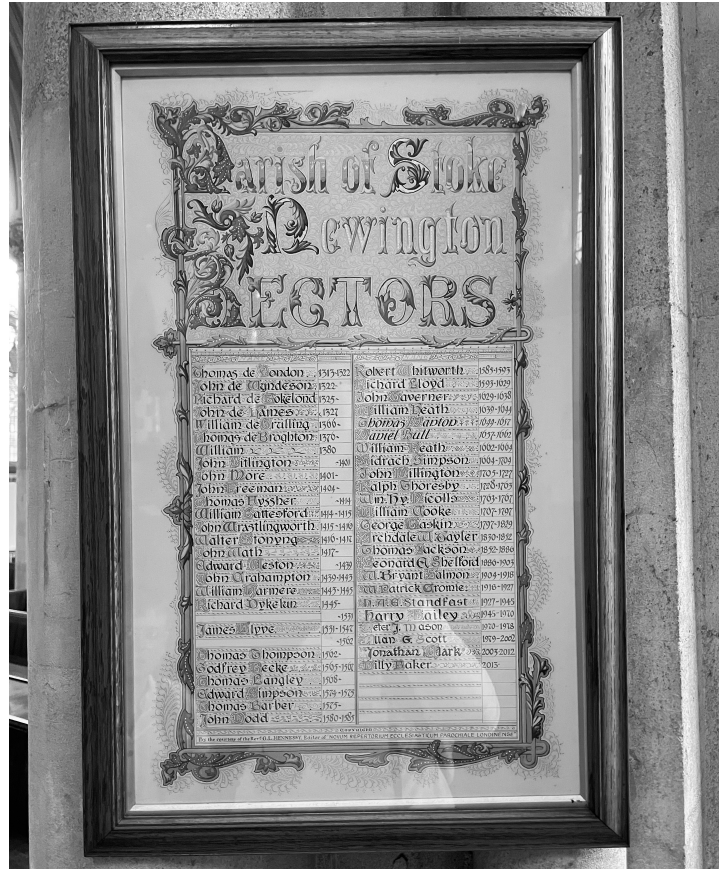 Parish of Stoke
Newington
RECTORS
Thomas de London 1313-1322
John de Wyndeson 1322-
Richard de 1325-
John de 1327
William de 1366-
Thomas de Broghton 1370-
William 1380
John -1401
John More 1401-
John Freeman 1404-
Thomas Vyssher -1414
William 1414-1415
John Wrastlingworth 1415-1416
Walter Stonyng 1416-1417
John 1417-
Edward Weston -1439
John Crahampton 1439-1443
William 1443-1445
Richard Dykelun 1445-
-1531
James Clyve 1531-1547
-1562
Thomas Thompson 1562-
Godfrey
Thomas Langley 1568-
Edward Simpson 1574-1575
Thomas Barber 1575-
John Dodd 1580-1585
Robert Whitworth 1585-1593
Richard Lloyd 1593-1629
John Taverner 1629-1638
William Heath 1639-1644
Thomas Manton
Daniel Bull 1657-1662
William Heath 1662-1664
Sidrach Simpson 1664-1704
John Millington 1705-1727
Ralph Thoresby
Wm Hy Nicolls
William Cooke 1767-1797
George Gaskin 1797-1829
Archdale W. Tayler 1830-1852
Thomas Jackson 1852-1886
Leonard E. Shelford 1886-1903
W. Bryant Salmon 1904-1918
W. Patrick Cromie 1916-1927
Standfast 1927-1945
Harry Bailey 1945-1970
Peter J. Mason 1970-1978
Allan G. Scott 1979-2002
Jonathan Clark 2003-2012
Dilly Baker 2013-
By the courtesy of the Revd G.L. HENNESSY, Editor of NOVUM REPERTORIUM ECCLESIASTICUM PAROCHIALE LONDINENSE